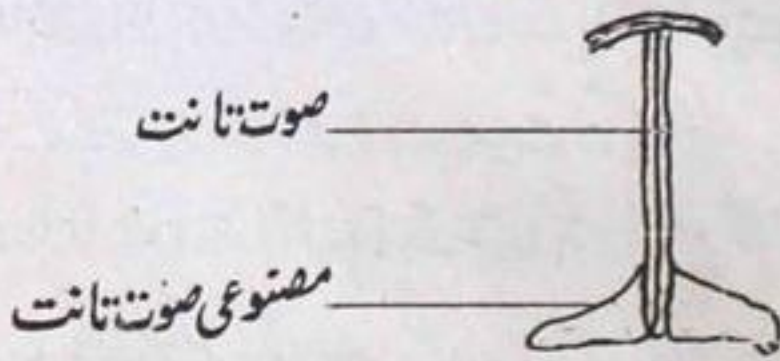 صوت تانت
مصنوعی صوت تانت